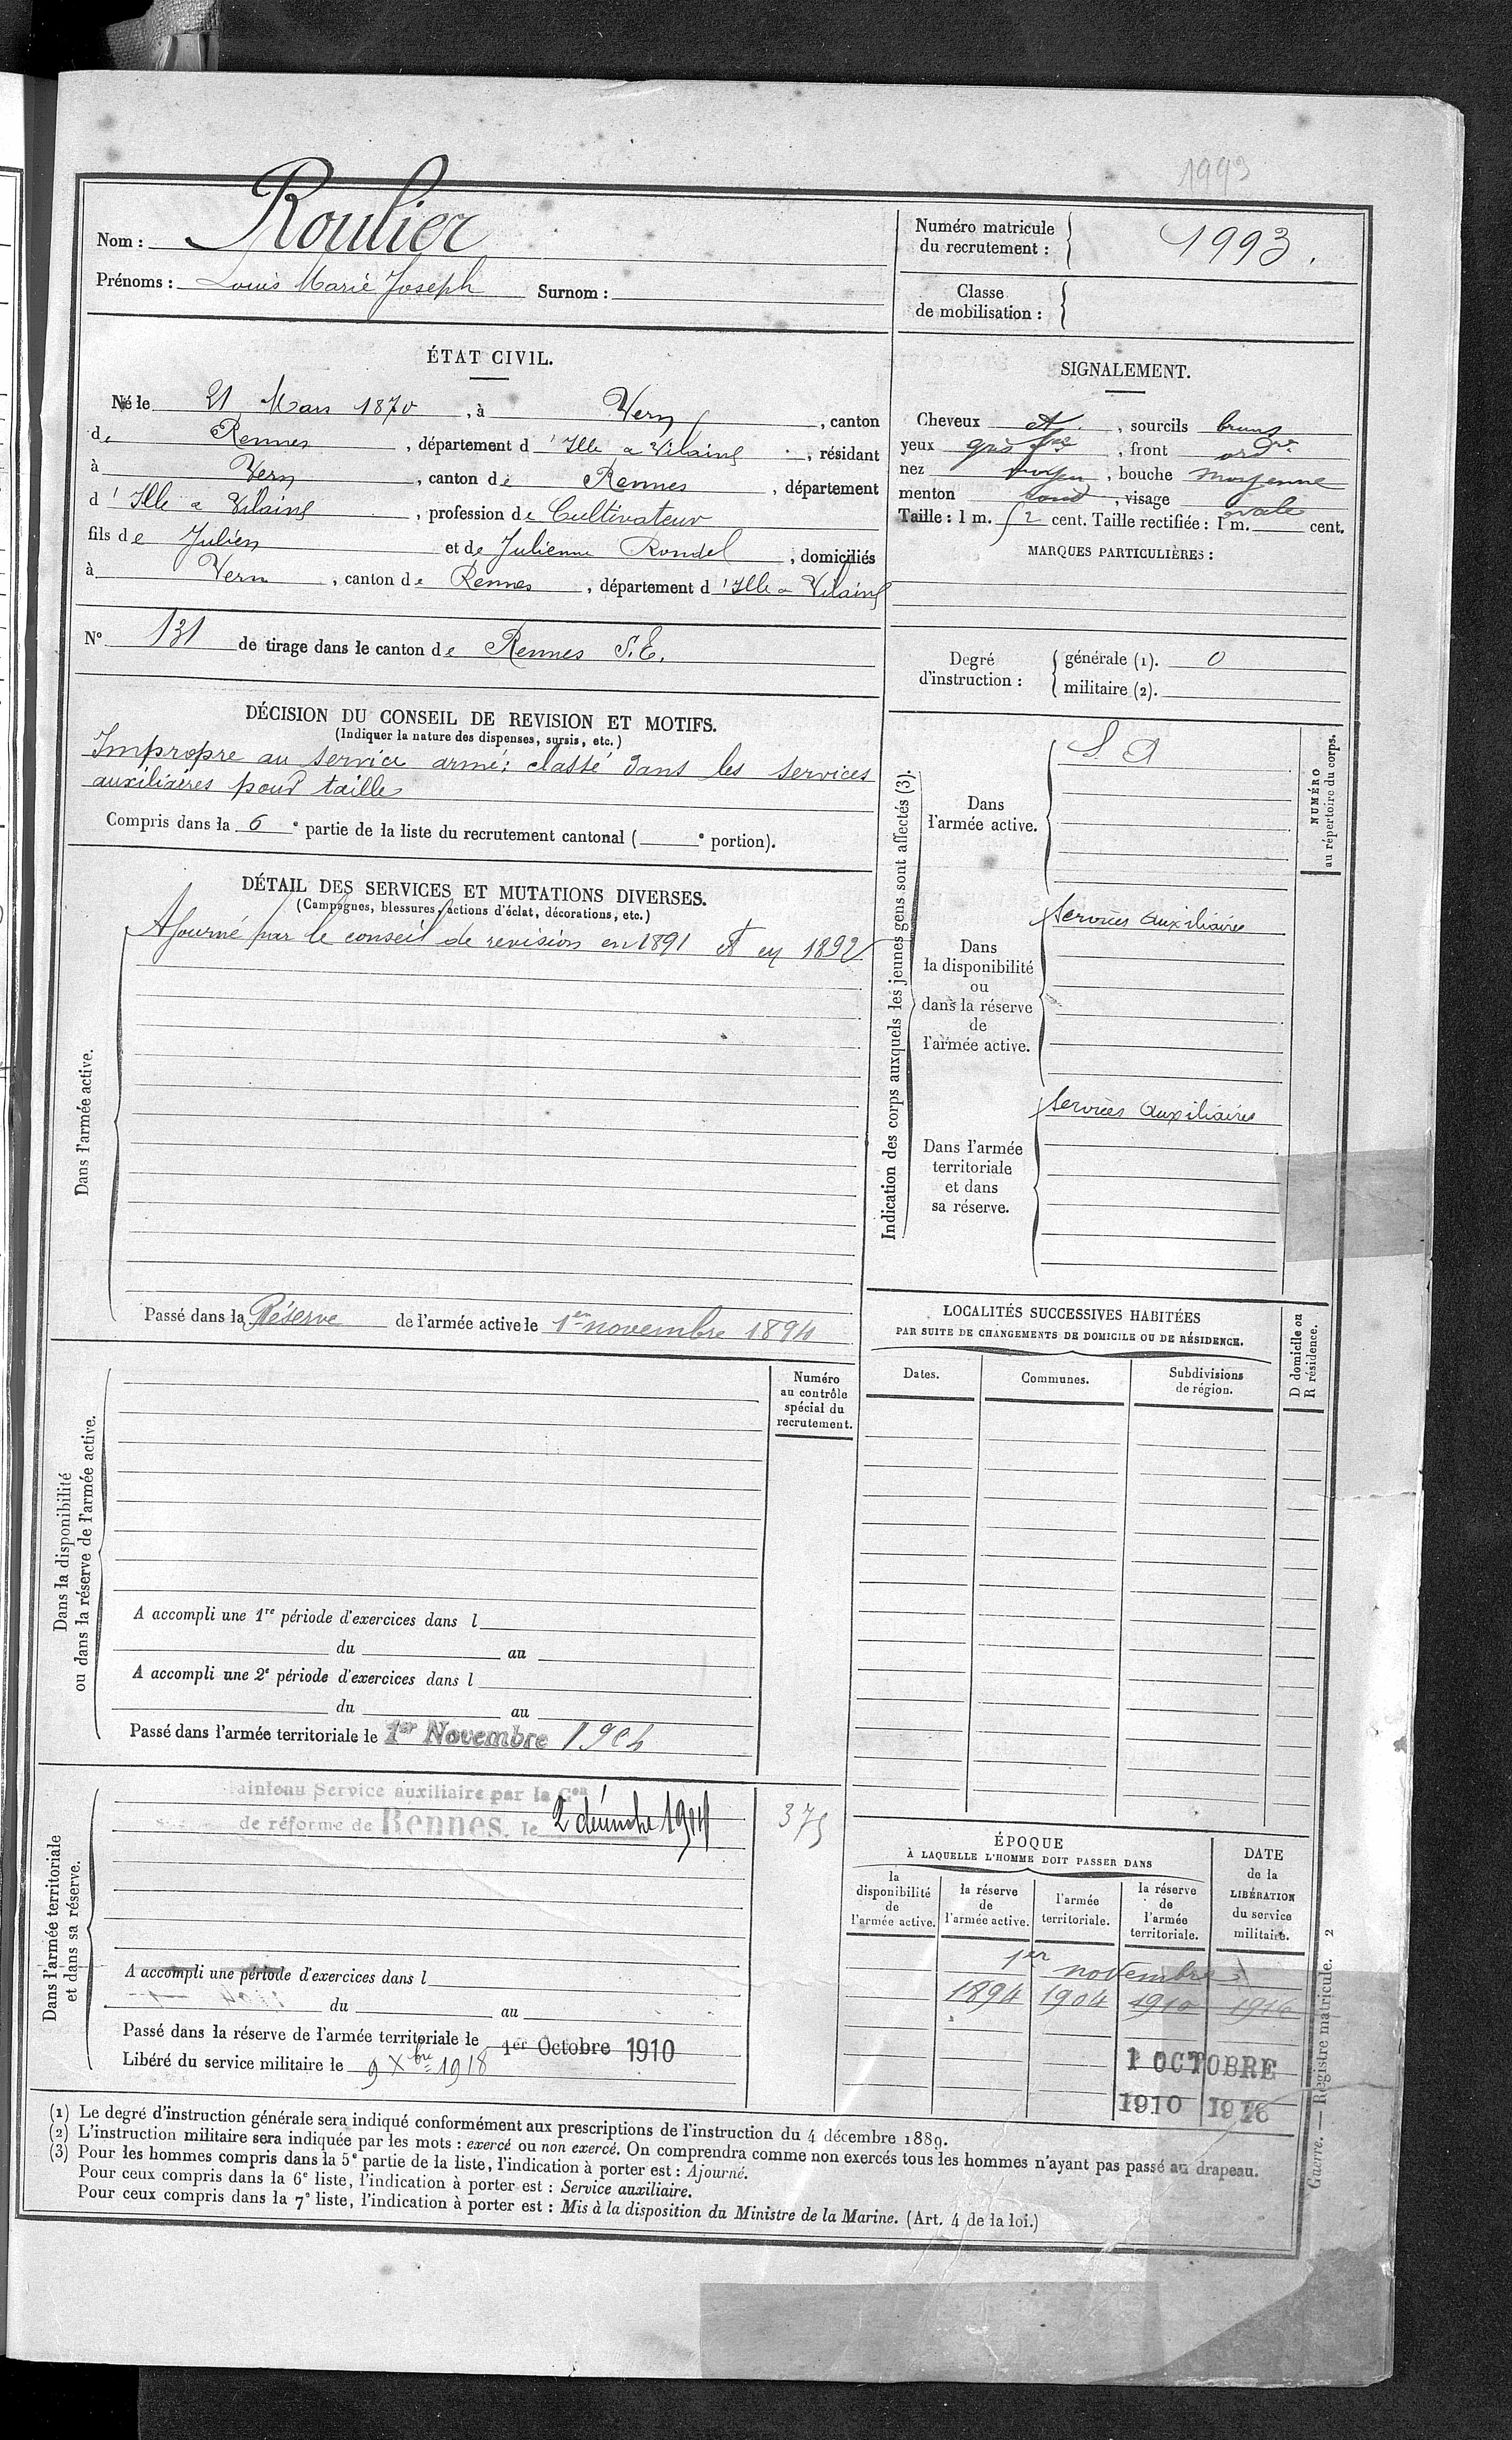 1993
Nom : Roulier
Prénoms : Louis Marie Joseph Surnom :
Numéro matricule
du recrutement : 1993.
Classe
de mobilisation :
ÉTAT CIVIL.
Né le 21 Mars 1870, à Vern, canton
de Rennes, département d'Ille & Vilaine, résidant
à Vern, canton de Rennes, département
d'Ille & Vilaine, profession de Cultivateur
fils de Julien et de Julienne Rondel, domiciliés
à Vern, canton de Rennes, département d'Ille & Vilaine
N° 131 de tirage dans le canton de Rennes S.E.
SIGNALEMENT.
Cheveux et, sourcils bruns
yeux gris, front ord.re
nez moyen, bouche moyenne
menton rond, visage ovale
Taille : 1 m. 52 cent. Taille rectifiée : 1 m. cent.
MARQUES PARTICULIÈRES :
Degré
d'instruction :
générale (1). 0
militaire (2).
DÉCISION DU CONSEIL DE REVISION ET MOTIFS.
(Indiquer la nature des dispenses, sursis, etc.)
Impropre au service armé; classé dans les services
auxiliaires pour taille
Compris dans la 6e partie de la liste du recrutement cantonal ( e portion).
DÉTAIL DES SERVICES ET MUTATIONS DIVERSES.
(Campagnes, blessures, actions d'éclat, décorations, etc.)
Dans l'armée active.
Ajourné par le conseil de revision en 1891 et en 1892
Passé dans la Réserve de l'armée active le 1er novembre 1894
Indication des corps auxquels les jeunes gens sont affectés (3).
Dans
l'armée active.
S. A
NUMÉRO
au répertoire du corps.
Dans
la disponibilité
ou
dans la réserve
de
l'armée active.
Services Auxiliaires
Dans l'armée
territoriale
et dans
sa réserve.
Services Auxiliaires
Dans la disponibilité
ou dans la réserve de l'armée active.
Numéro
au contrôle
spécial du
recrutement.
A accompli une 1re période d'exercices dans l
du au
A accompli une 2e période d'exercices dans l
du au
Passé dans l'armée territoriale le 1er Novembre 1904
LOCALITÉS SUCCESSIVES HABITÉES
PAR SUITE DE CHANGEMENTS DE DOMICILE OU DE RÉSIDENCE.
Dates.
Communes.
Subdivisions
de région.
D domicile ou
R résidence.
Dans l'armée territoriale
et dans sa réserve.
Service auxiliaire par la Con
de réforme de Rennes, le 2 décembre 1914
375
A accompli une période d'exercices dans l
du au
Passé dans la réserve de l'armée territoriale le 1er Octobre 1910
Libéré du service militaire le 9 Xbre 1918
ÉPOQUE
À LAQUELLE L'HOMME DOIT PASSER DANS
la
disponibilité
de
l'armée active.
la réserve
de
l'armée active.
l'armée
territoriale.
la réserve
de
l'armée
territoriale.
DATE
de la
LIBÉRATION
du service
militaire.
1er novembre
1894 1904 1910 1916
1 OCTOBRE
1910 1916
Guerre. — Registre matricule. 2
(1) Le degré d'instruction générale sera indiqué conformément aux prescriptions de l'instruction du 4 décembre 1889.
(2) L'instruction militaire sera indiquée par les mots : exercé ou non exercé. On comprendra comme non exercés tous les hommes n'ayant pas passé au drapeau.
(3) Pour les hommes compris dans la 5e partie de la liste, l'indication à porter est : Ajourné.
Pour ceux compris dans la 6e liste, l'indication à porter est : Service auxiliaire.
Pour ceux compris dans la 7e liste, l'indication à porter est : Mis à la disposition du Ministre de la Marine. (Art. 4 de la loi.)